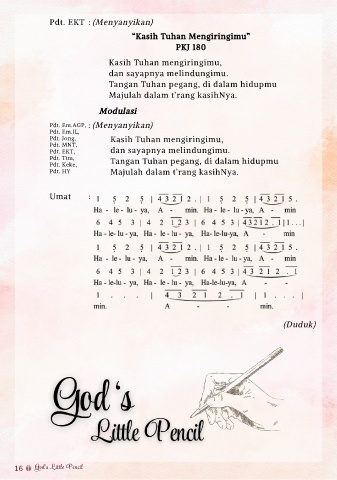 Pdt. EKT : (Menyanyikan)
"Kasih Tuhan Mengiringimu"
PKJ 180
Kasih Tuhan mengiringimu,
dan sayapnya melindungimu.
Tangan Tuhan pegang, di dalam hidupmu
Majulah dalam t'rang kasihNya.
Modulasi
Pdt. Em.AGP. : (Menyanyikan)
Pdt. Em.JL,
Pdt. Jong,
Pdt. MNT,
Pdt. EKT,
Pdt. Tim,
Pdt. Keke,
Pdt. HY
Kasih Tuhan mengiringimu,
dan sayapnya melindungimu.
Tangan Tuhan pegang, di dalam hidupmu
Majulah dalam t'rang kasihNya.
Umat : 1 5 2 5 | 4 3 2 1 2 . | 1 5 2 5 | 4 3 2 1 5 .
Ha - le - lu - ya, A - min. Ha - le - lu - ya, A - min
6 4 5 3 | 4 2 1 2 3 | 6 4 5 3 | 4 3 2 1 2 . 1 | 1 . . . |
Ha - le - lu - ya, Ha - le - lu - ya, Ha-le-lu-ya, A - min
1 5 2 5 | 4 3 2 1 2 . | 1 5 2 5 | 4 3 2 1 5 .
Ha - le - lu - ya, A - min. Ha - le - lu - ya, A - min
6 4 5 3 | 4 2 1 2 3 | 6 4 5 3 | 4 3 2 1 2 . 1
Ha-le-lu - ya, Ha - le - lu - ya, Ha-le-lu-ya, A - -
1 . . . | 4 3 2 1 2 . 1 | 1 . . . |
min. A - - min.
(Duduk)
God's
Little Pencil
16 God's Little Pencil